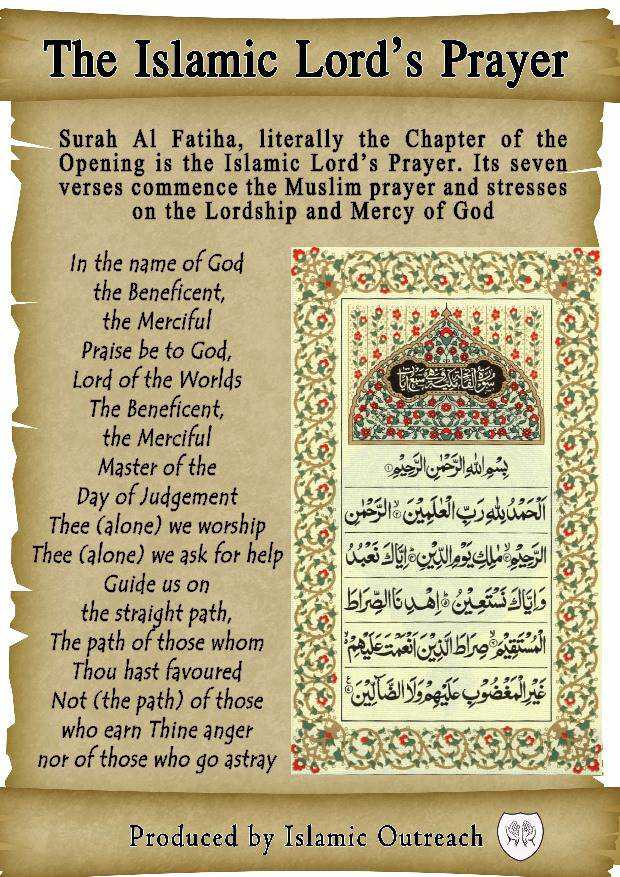 The Islamic Lord's Prayer
Surah Al Fatiha, literally the Chapter of the
Opening is the Islamic Lord's Prayer. Its seven
verses commence the Muslim prayer and stresses
on the Lordship and Mercy of God
In the name of God
the Beneficent,
the Merciful
Praise be to God,
Lord of the Worlds
The Beneficent,
the Merciful
Master of the
Day of Judgement
Thee (alone) we worship
Thee (alone) we ask for help
Guide us on
the straight path,
The path of those whom
Thou hast favoured
Not (the path) of those
who earn Thine anger
nor of those who go astray
بِسْمِ اللّٰهِ الرَّحْمٰنِ الرَّحِيْمِ ۝۱
اَلْحَمْدُ لِلّٰهِ رَبِّ الْعٰلَمِيْنَ ۝۲ الرَّحْمٰنِ
الرَّحِيْمِ ۝۳ مٰلِكِ يَوْمِ الدِّيْنِ ۝۴ اِيَّاكَ نَعْبُدُ
وَاِيَّاكَ نَسْتَعِيْنُ ۝۵ اِهْدِنَا الصِّرَاطَ
الْمُسْتَقِيْمَ ۝۶ صِرَاطَ الَّذِيْنَ اَنْعَمْتَ عَلَيْهِمْ
غَيْرِ الْمَغْضُوْبِ عَلَيْهِمْ وَلَا الضَّآلِّيْنَ ۝۷
Produced by Islamic Outreach